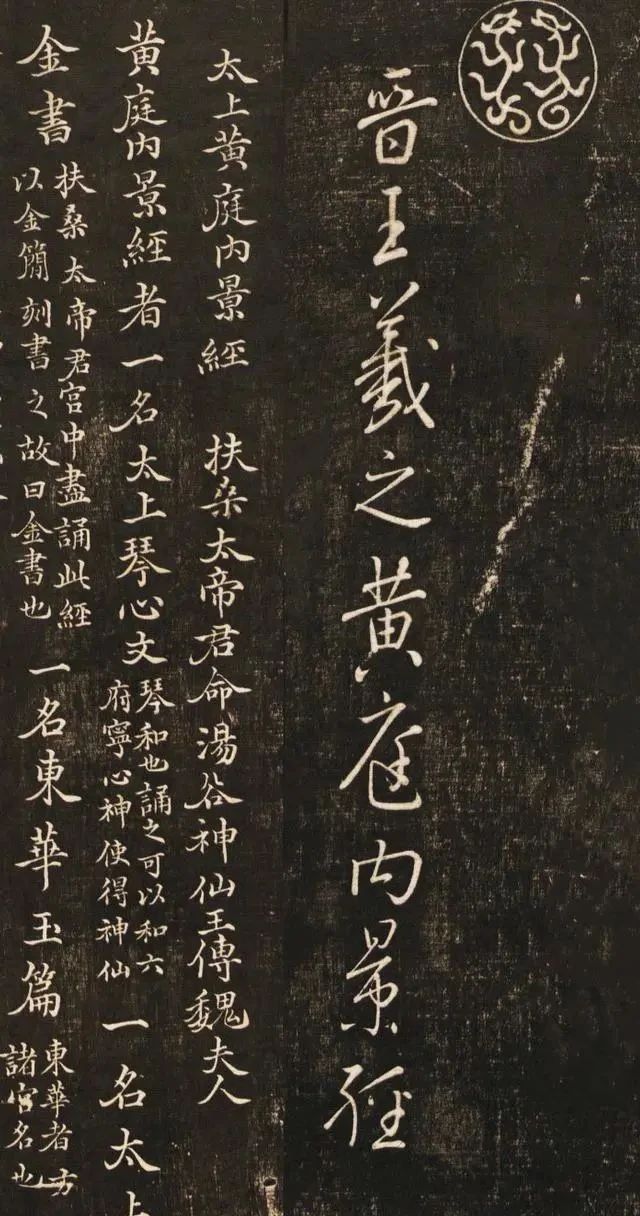 晋王羲之黄庭内景經
太上黄庭内景經 扶桒太帝君命湯谷神仙王傳魏夫人
黄庭内景經者一名太上琴心文
琴和也誦之可以和六
府寧心神使得神仙
一名太上
金書
扶桑太帝君宫中盡誦此經
以金簡刻書之故曰金書也
一名東華玉篇
東華者方
諸宫名也